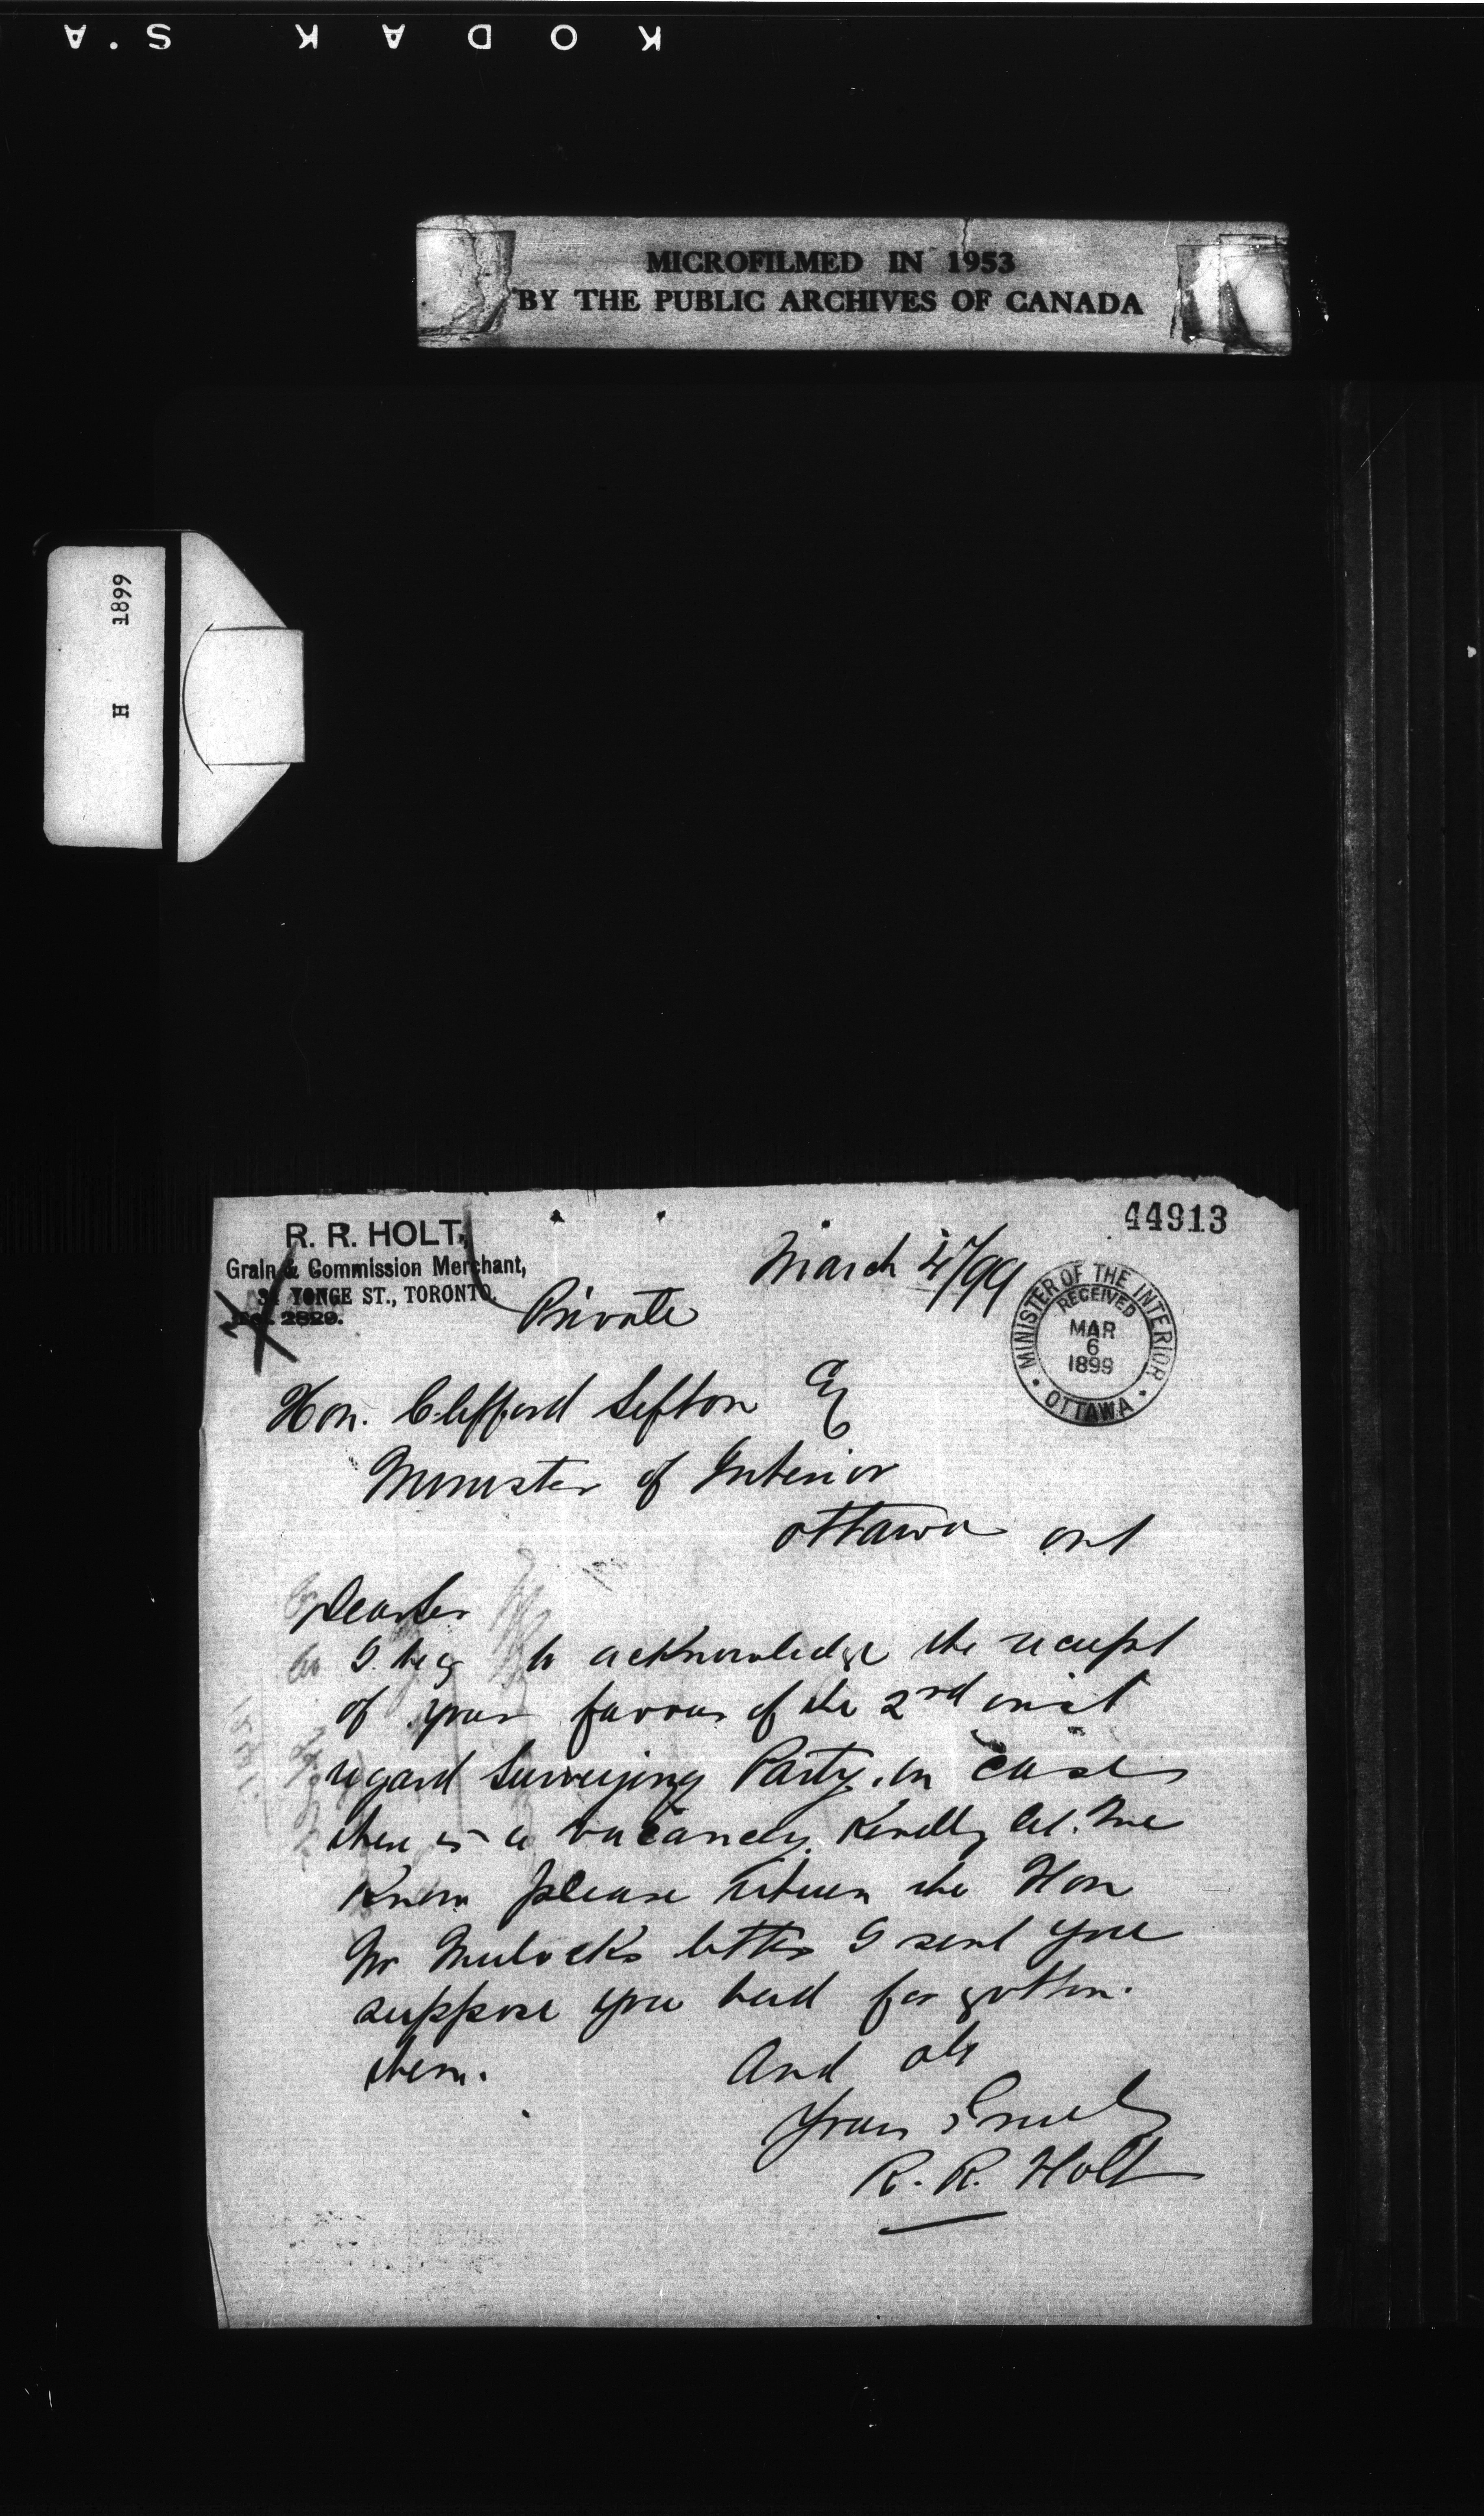 KODAK S.A
MICROFILMED IN 1953
BY THE PUBLIC ARCHIVES OF CANADA
H 1899
44913
R. R. HOLT,
Grain & Commission Merchant,
YONGE ST., TORONTO.
2829.
March 4/99
Private
MINISTER OF THE INTERIOR
RECEIVED
MAR
6
1899
OTTAWA
Hon. Clifford Sifton
Minister of Interior
Ottawa Ont
Dear Sir
I beg to acknowledge the receipt
of your favour of the 2nd inst
regard Surveying Party. in case
there is a vacancy. Kindly let me
Know please return the Hon
Mr Mulocks letter I sent you
suppose you had forgotten.
them. And obl
Yours Truly
R. R. Holt